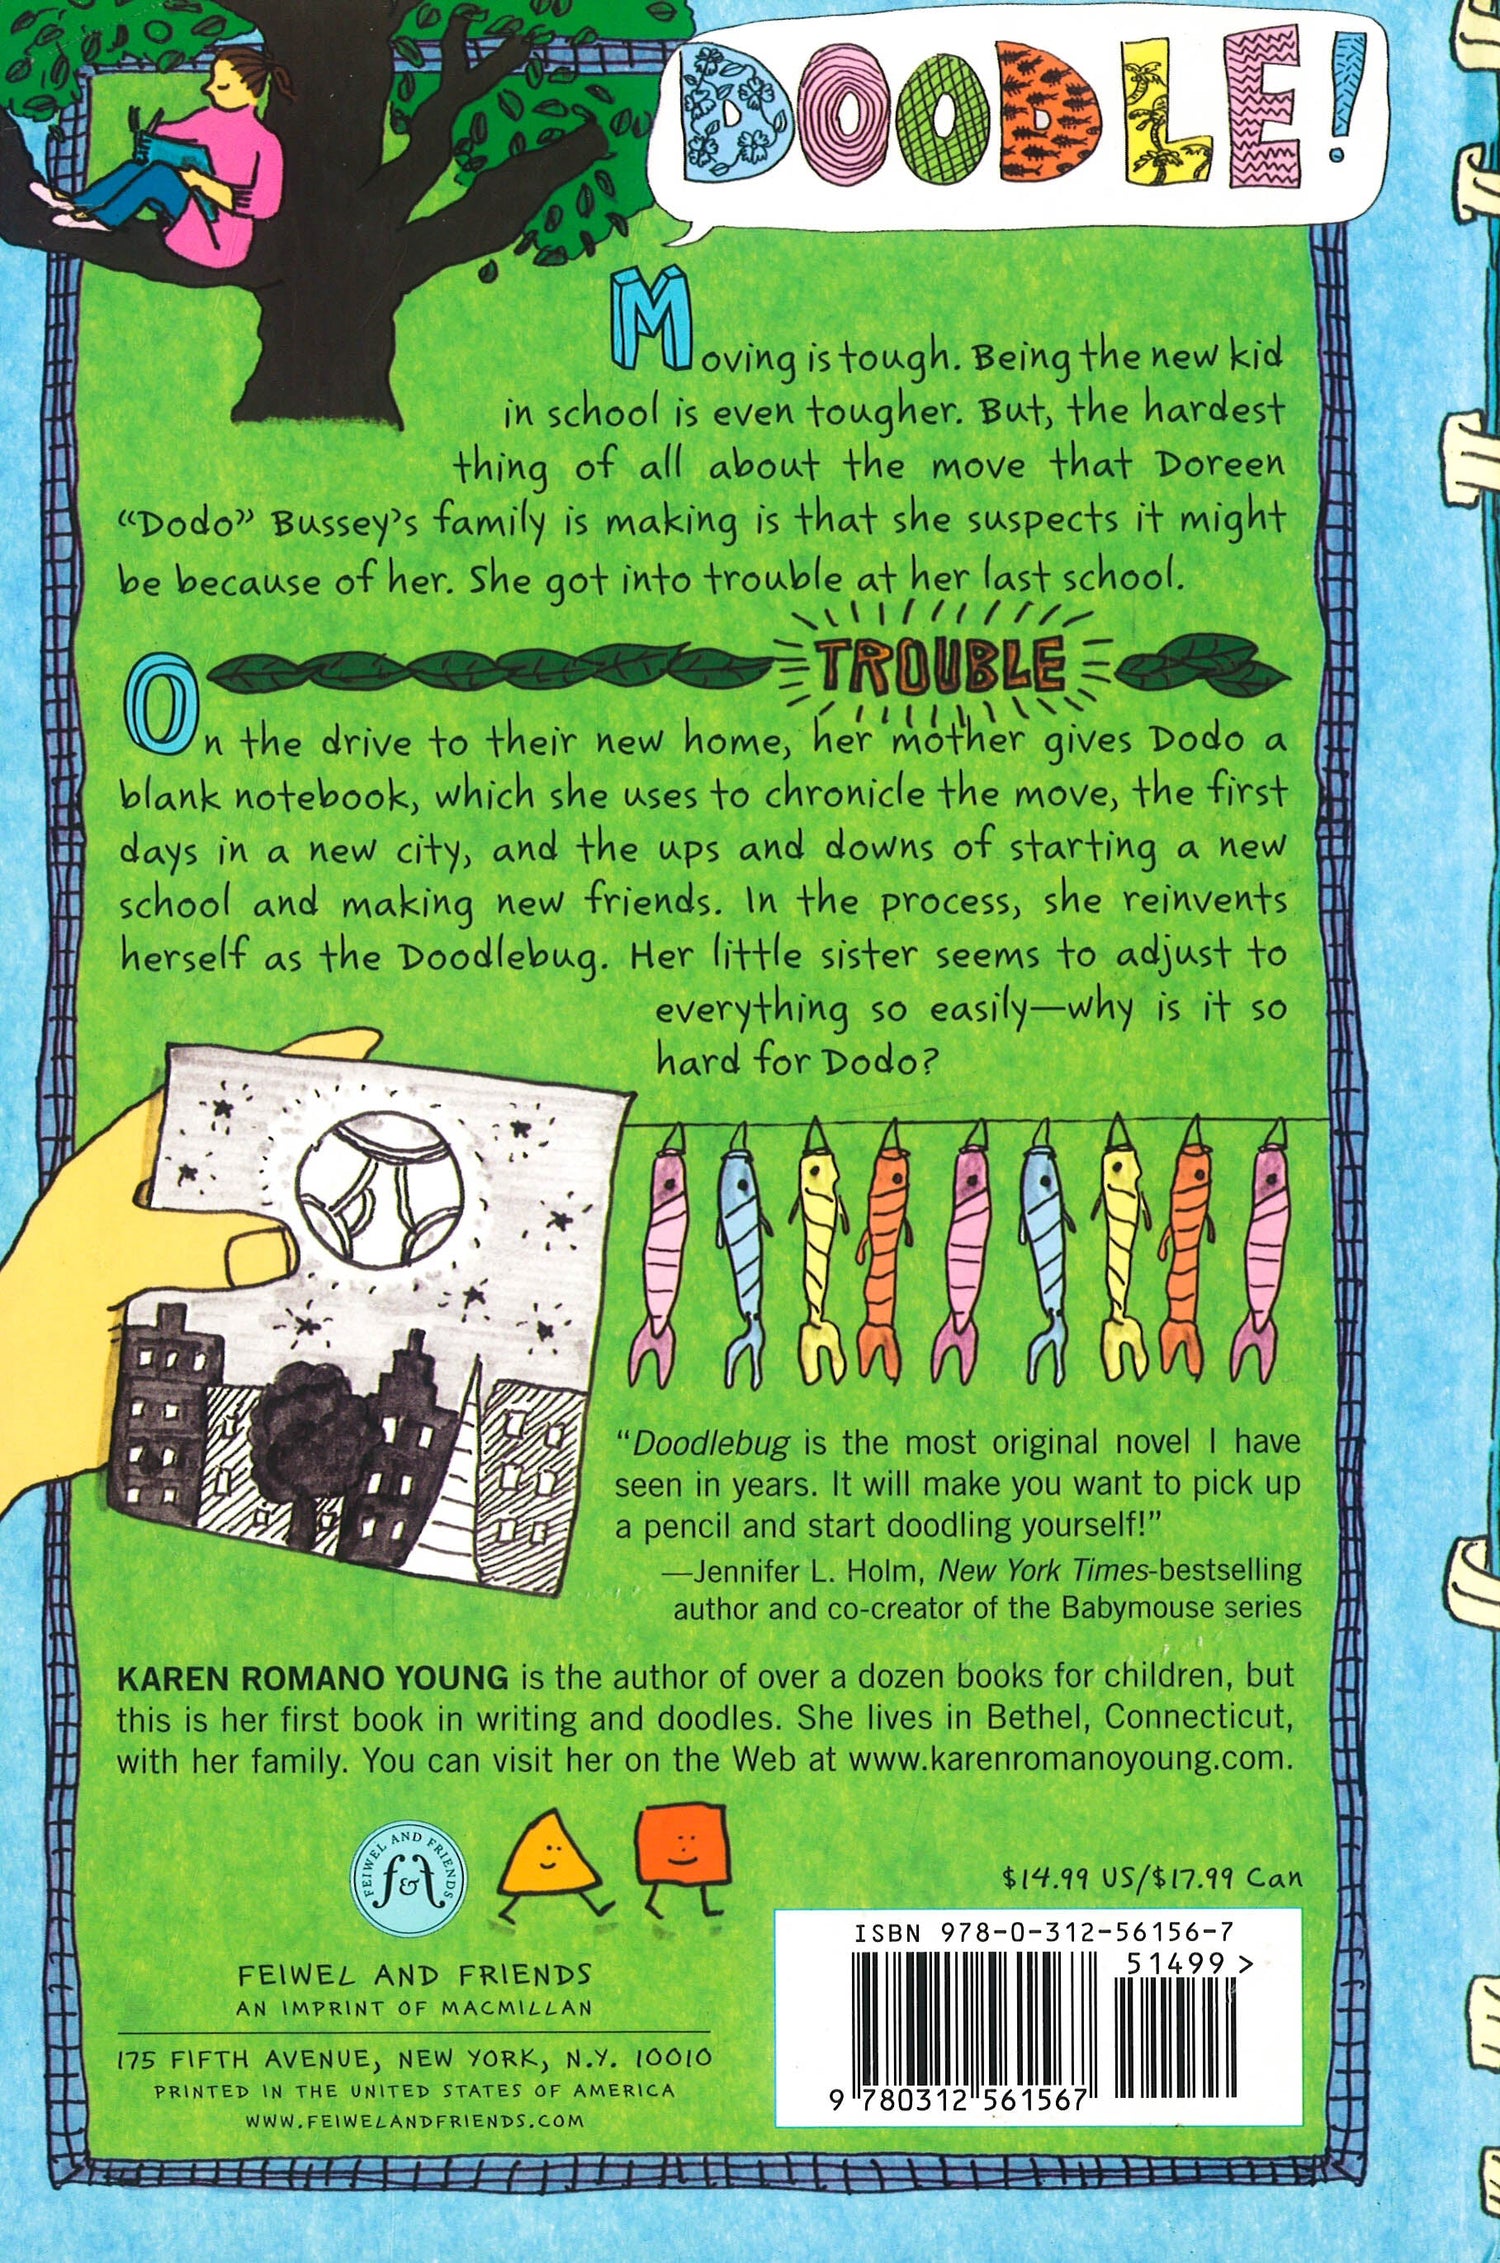 DOODLE!
Moving is tough. Being the new kid
in school is even tougher. But, the hardest
thing of all about the move that Doreen
“Dodo” Bussey’s family is making is that she suspects it might
be because of her. She got into trouble at her last school.
TROUBLE
On the drive to their new home, her mother gives Dodo a
blank notebook, which she uses to chronicle the move, the first
days in a new city, and the ups and downs of starting a new
school and making new friends. In the process, she reinvents
herself as the Doodlebug. Her little sister seems to adjust to
everything so easily—why is it so
hard for Dodo?
“Doodlebug is the most original novel I have
seen in years. It will make you want to pick up
a pencil and start doodling yourself!”
—Jennifer L. Holm, New York Times-bestselling
author and co-creator of the Babymouse series
KAREN ROMANO YOUNG is the author of over a dozen books for children, but
this is her first book in writing and doodles. She lives in Bethel, Connecticut,
with her family. You can visit her on the Web at www.karenromanoyoung.com.
FEIWEL AND FRIENDS
f&f
$14.99 US/$17.99 Can
FEIWEL AND FRIENDS
AN IMPRINT OF MACMILLAN
175 FIFTH AVENUE, NEW YORK, N.Y. 10010
PRINTED IN THE UNITED STATES OF AMERICA
WWW.FEIWELANDFRIENDS.COM
ISBN 978-0-312-56156-7
51499>
9 780312 561567